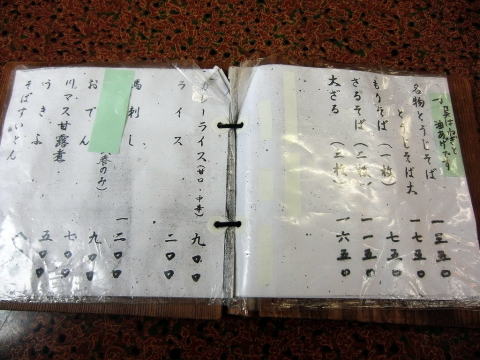 名物とうじそば 一三五〇
とうじそば大 一七五〇
もりそば（一枚） 七五〇
ざるそば（二枚） 一一五〇
大ざる（三枚） 一六五〇
カレーライス（甘口・中辛） 九〇〇
ライス 二〇〇
馬刺し 一二〇〇
おでん 九〇〇
川マス甘露煮 七〇〇
うきふ 五〇〇
そばすいとん